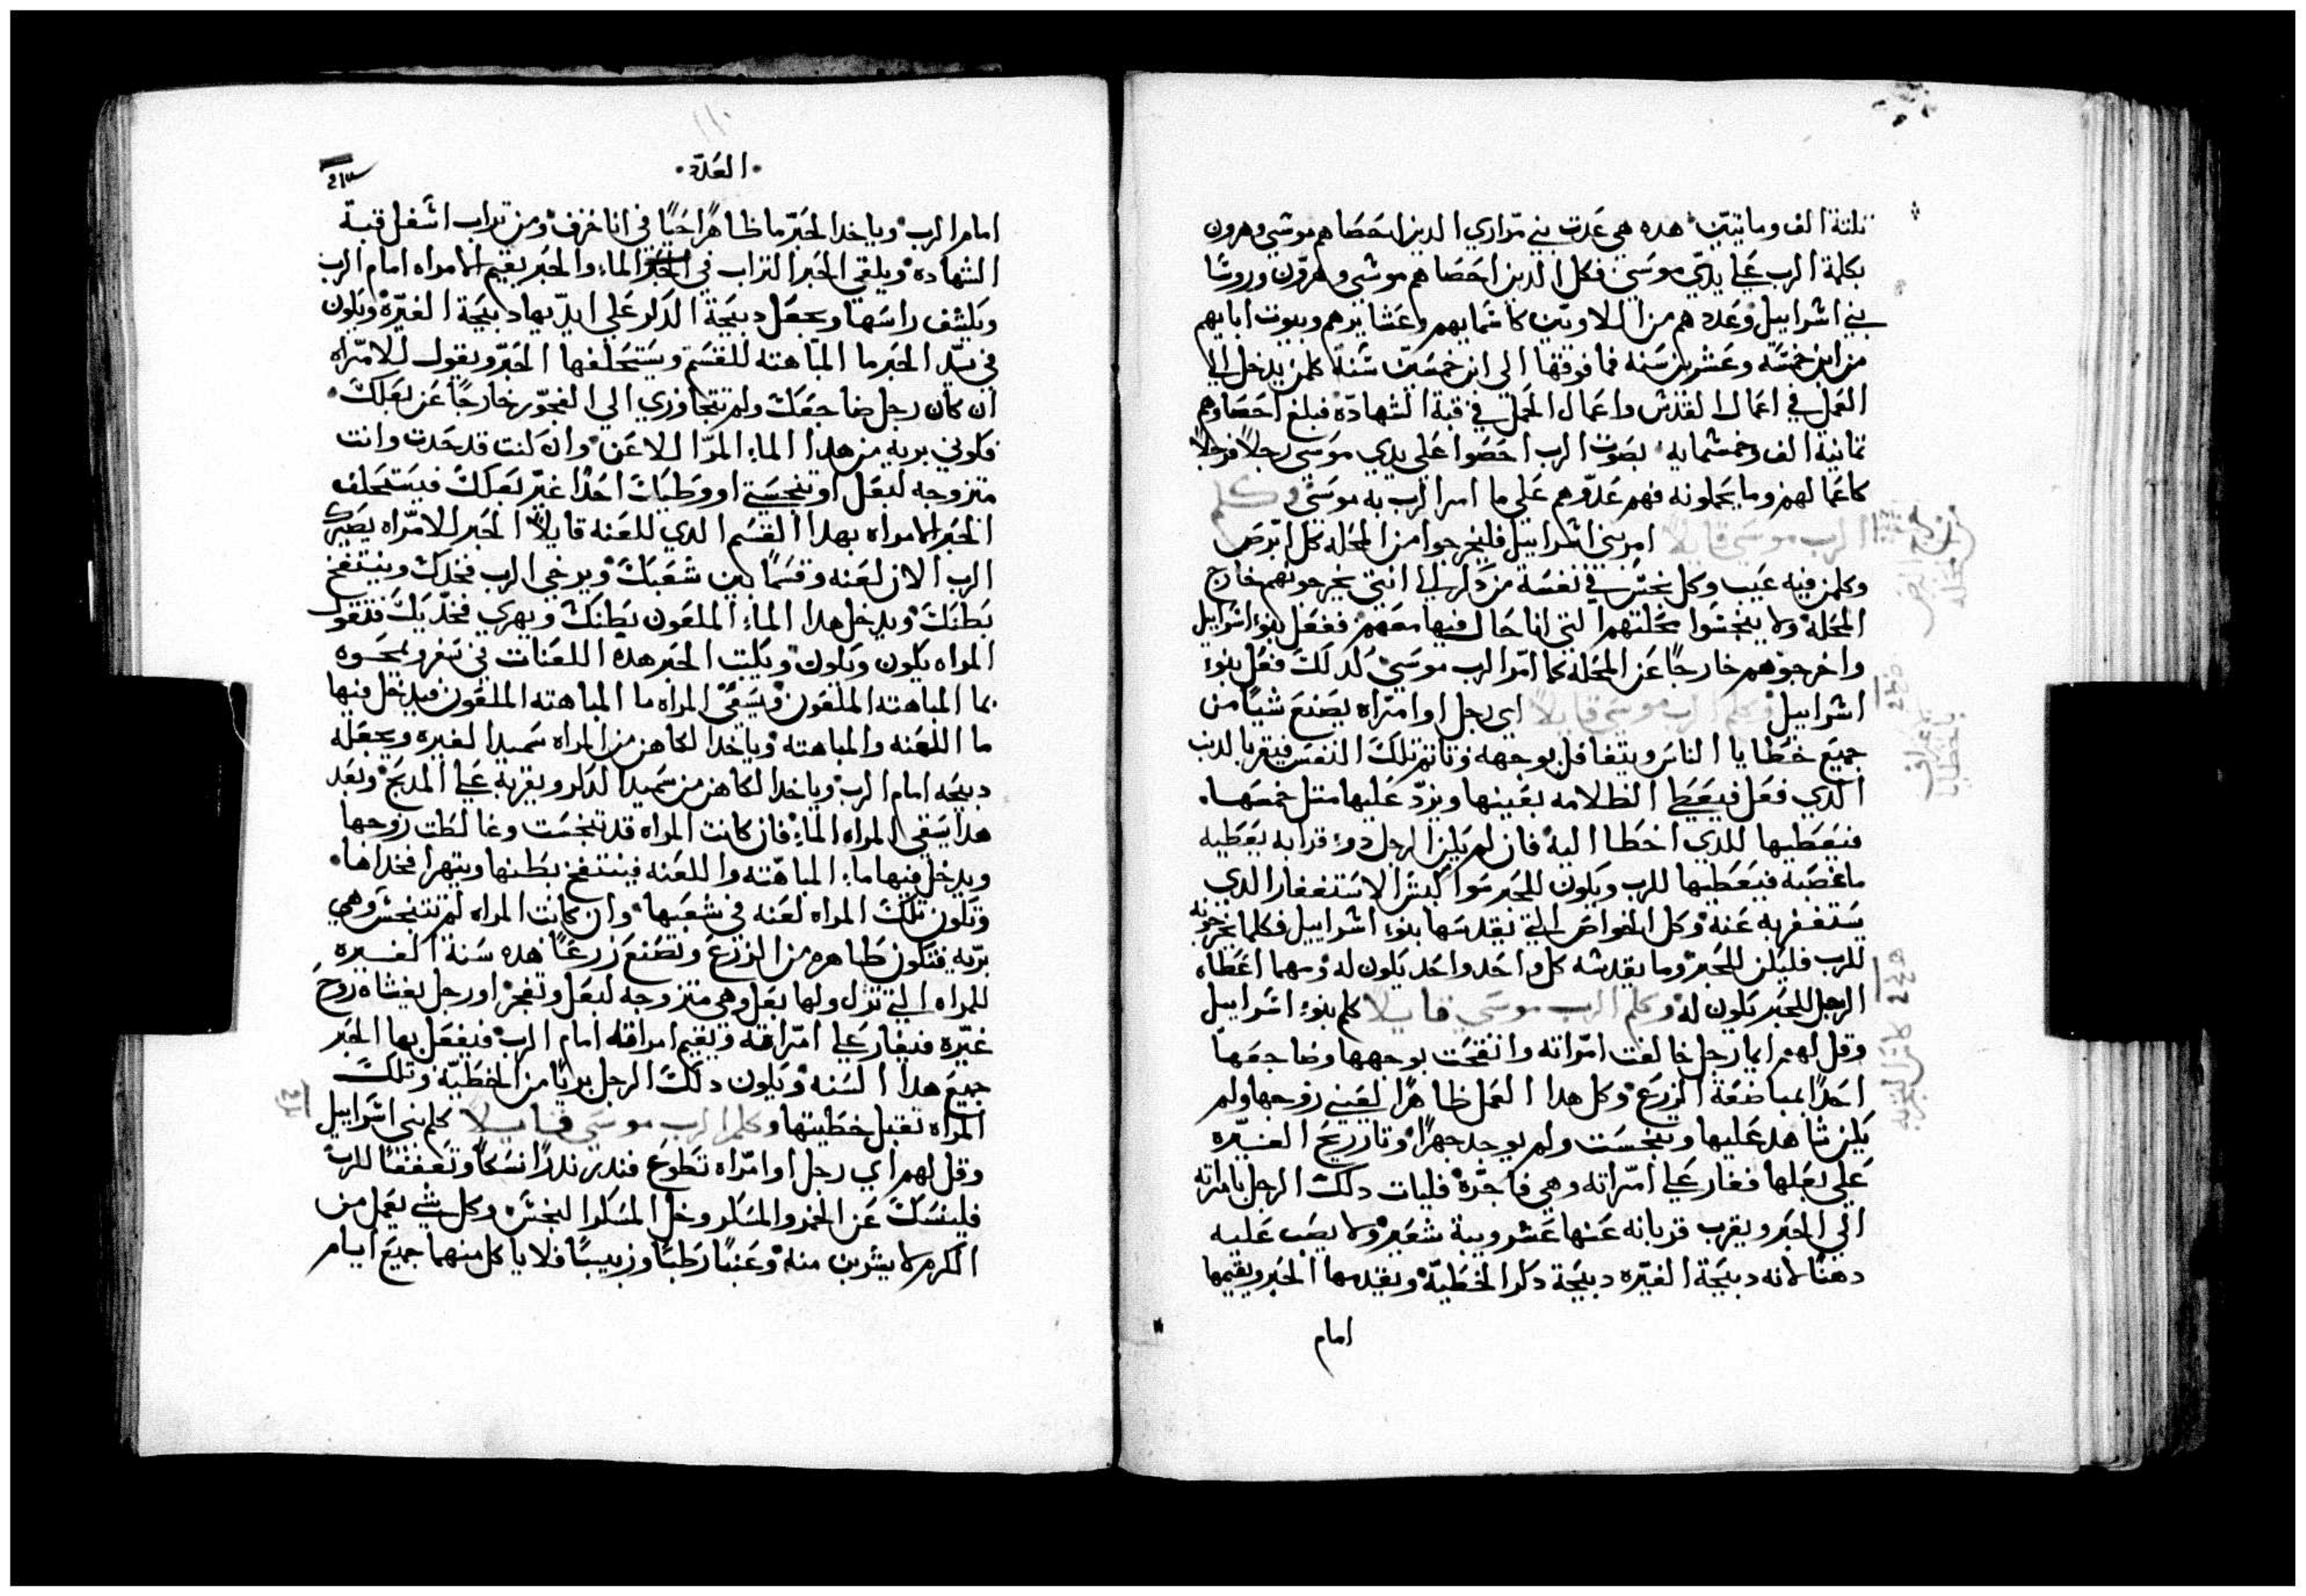 تلتة الف ومايتين هده هي عدت بني مراري الدين احصاهم موسي وهرون
بكلمة الرب علي يدي موسي فكل الدين احصاهم موسي وهرون وروسا
بني اسراييل وعددهم من اللاويين كاسمايهم وعشايرهم وبيوت ابايهم
من ابن خمسه وعشرين سنه فما فوقها الي ابن خمسين سنة كلمن يدخل الي
العمل في اعمال القدس واعمال المحمل في قبة الشهادة فبلغ احصاوهم
تمانية الف وخمسمايه بصوت الرب احصوا علي يدي موسي رجلاً فرجلاً
كاعمالهم وما يحملونه فهم عدوهم علي ما امر الرب به موسي وكلم
الرب موسي قايلاً امر بني اسراييل فليخرجوا من المحله كل ابرص
وكلمن فيه عيب وكل نجس في نفسة من دكر الي انتي يخرجونهم خارج
المحلة ولا ينجسوا محلتهم التي انا حال فيها معهم ففعل بنوء اسراييل
واخرجوهم خارجاً عن المحلة كما امر الرب موسي كدلك فعل بنوء
اسراييل وكلم الرب موسي قايلاً اي رجل او امراه يصنع شيا من
جميع خطايا الناس ويتغافل بوجهه وتاتم تلك النفس فيقر بالدنب
الدي فعل فيعطي الظلامه بعينها ويزد عليها متل خمسها
فيعطيها للدي اخطا اليه فان لم يكن الرجل دو قرابه يعطيه
ما غصبه فيعطيها للرب ويكون للحبر سوا كبش الاستغفار الدي
يستغفر به عنه وكل الخواص التي يقدسها بنوء اسراييل فكلما يخرجونه
للرب فليكن للحبر وما يقدسه كل واحد واحد يكون له ومهما اعطاه
الرجل للحبر يكون له وكلم الرب موسي قايلاً كلم بنوء اسراييل
وقل لهم ايما رجل خالفت امراته وانقحت بوجهها وضاجعها
احدًا بمباضعة الزرع وكل هدا العمل ظاهرًا لعيني زوجها ولم
يكن شاهد عليها وتنجست ولم يوجد جهرًا وتار ريح الغيره
علي بعلها فغار علي امراته وهي فاجرة فليات دلك الرجل بامراته
الي الحبر ويقرب قربانه عنها عشر ويبة شعير ولا يصب عليه
دهنًا لانه دبيحة الغيره دبيحة دكر الخطية ويقدمها الحبر ويقيمها
امام
العدد
امام الرب وياخد الحبر ما ظاهرًا حيًا في انا خزف ومن تراب اسفل قبة
الشهاده ويلقي الحبر التراب في الماء والحبر يقيم الامراه امام الرب
ويكشف راسها ويجعل دبيحة الدكر علي ايديها دبيحة الغيرة ويكون
في يد الحبر ما المباهته للقسم ويستحلفها الحبر ويقول للامراه
ان كان رجل ضاجعك ولم تتجاوزي الي الفجور خارجًا عن بعلك
فكوني بريه من هدا الماء المر اللاعن وان كنت قد حدت وانت
متزوجه لبعل او تنجستي او وطيك احدًا غير بعلك فيستحلف
الحبر الامراه بهدا القسم الدي للعنه قايلاً الحبر للامراه يصيرك
الرب الان لعنه وقسمًا بين شعبك ويرخي الرب فخدك وينتفخ
بطنك ويدخل هدا الماء الملعون بطنك ويهري فخديك فتقول
المراه يكون ويكون ويكتب الحبر هده اللعنات في سفر ويمحوه
بما المباهته الملعون ويسقي المراه ما المباهته الملعون فيدخل فيها
ما اللعنه والمباهته وياخد الكاهن من المراه سميد الغيره ويجعله
دبيحه امام الرب وياخد الكاهن من سميد الدكر ويقربه علي المدبح وبعد
هدا يسقي المراه الماء فان كانت المراه قد تنجست وغالطت زوجها
ويدخل فيها ماء المباهته واللعنه فينتفخ بطنها ويتهرا فخداها
وتكون تلك المراه لعنه في شعبها وان كانت المراه لم تتنجس وهي
بريه فتكون طاهره من الزرع وتصنع زرعًا هده سنة الغيره
للمراه التي تزل ولها بعل وهي متزوجه لبعل وتفجر او رجل يغشاه روح
غيره فيغار علي امراته ويقيم امراته امام الرب فيفعل بها الحبر
جميع هدا السنه ويكون دلك الرجل بريًا من الخطيه وتلك
المراه تقبل خطيتها وكلم الرب موسي قايلاً كلم بني اسراييل
وقل لهم اي رجل او امراه تطوع فندر ندرًا نسكًا وتعففًا للرب
فلينسك عن الخمر والمسكر وخل المسكر لا يجسه وكل شي يعمل من
الكرم لا يشرب منه وعنبًا رطبًا وزبيبًا فلا ياكل منهما جميع ايام